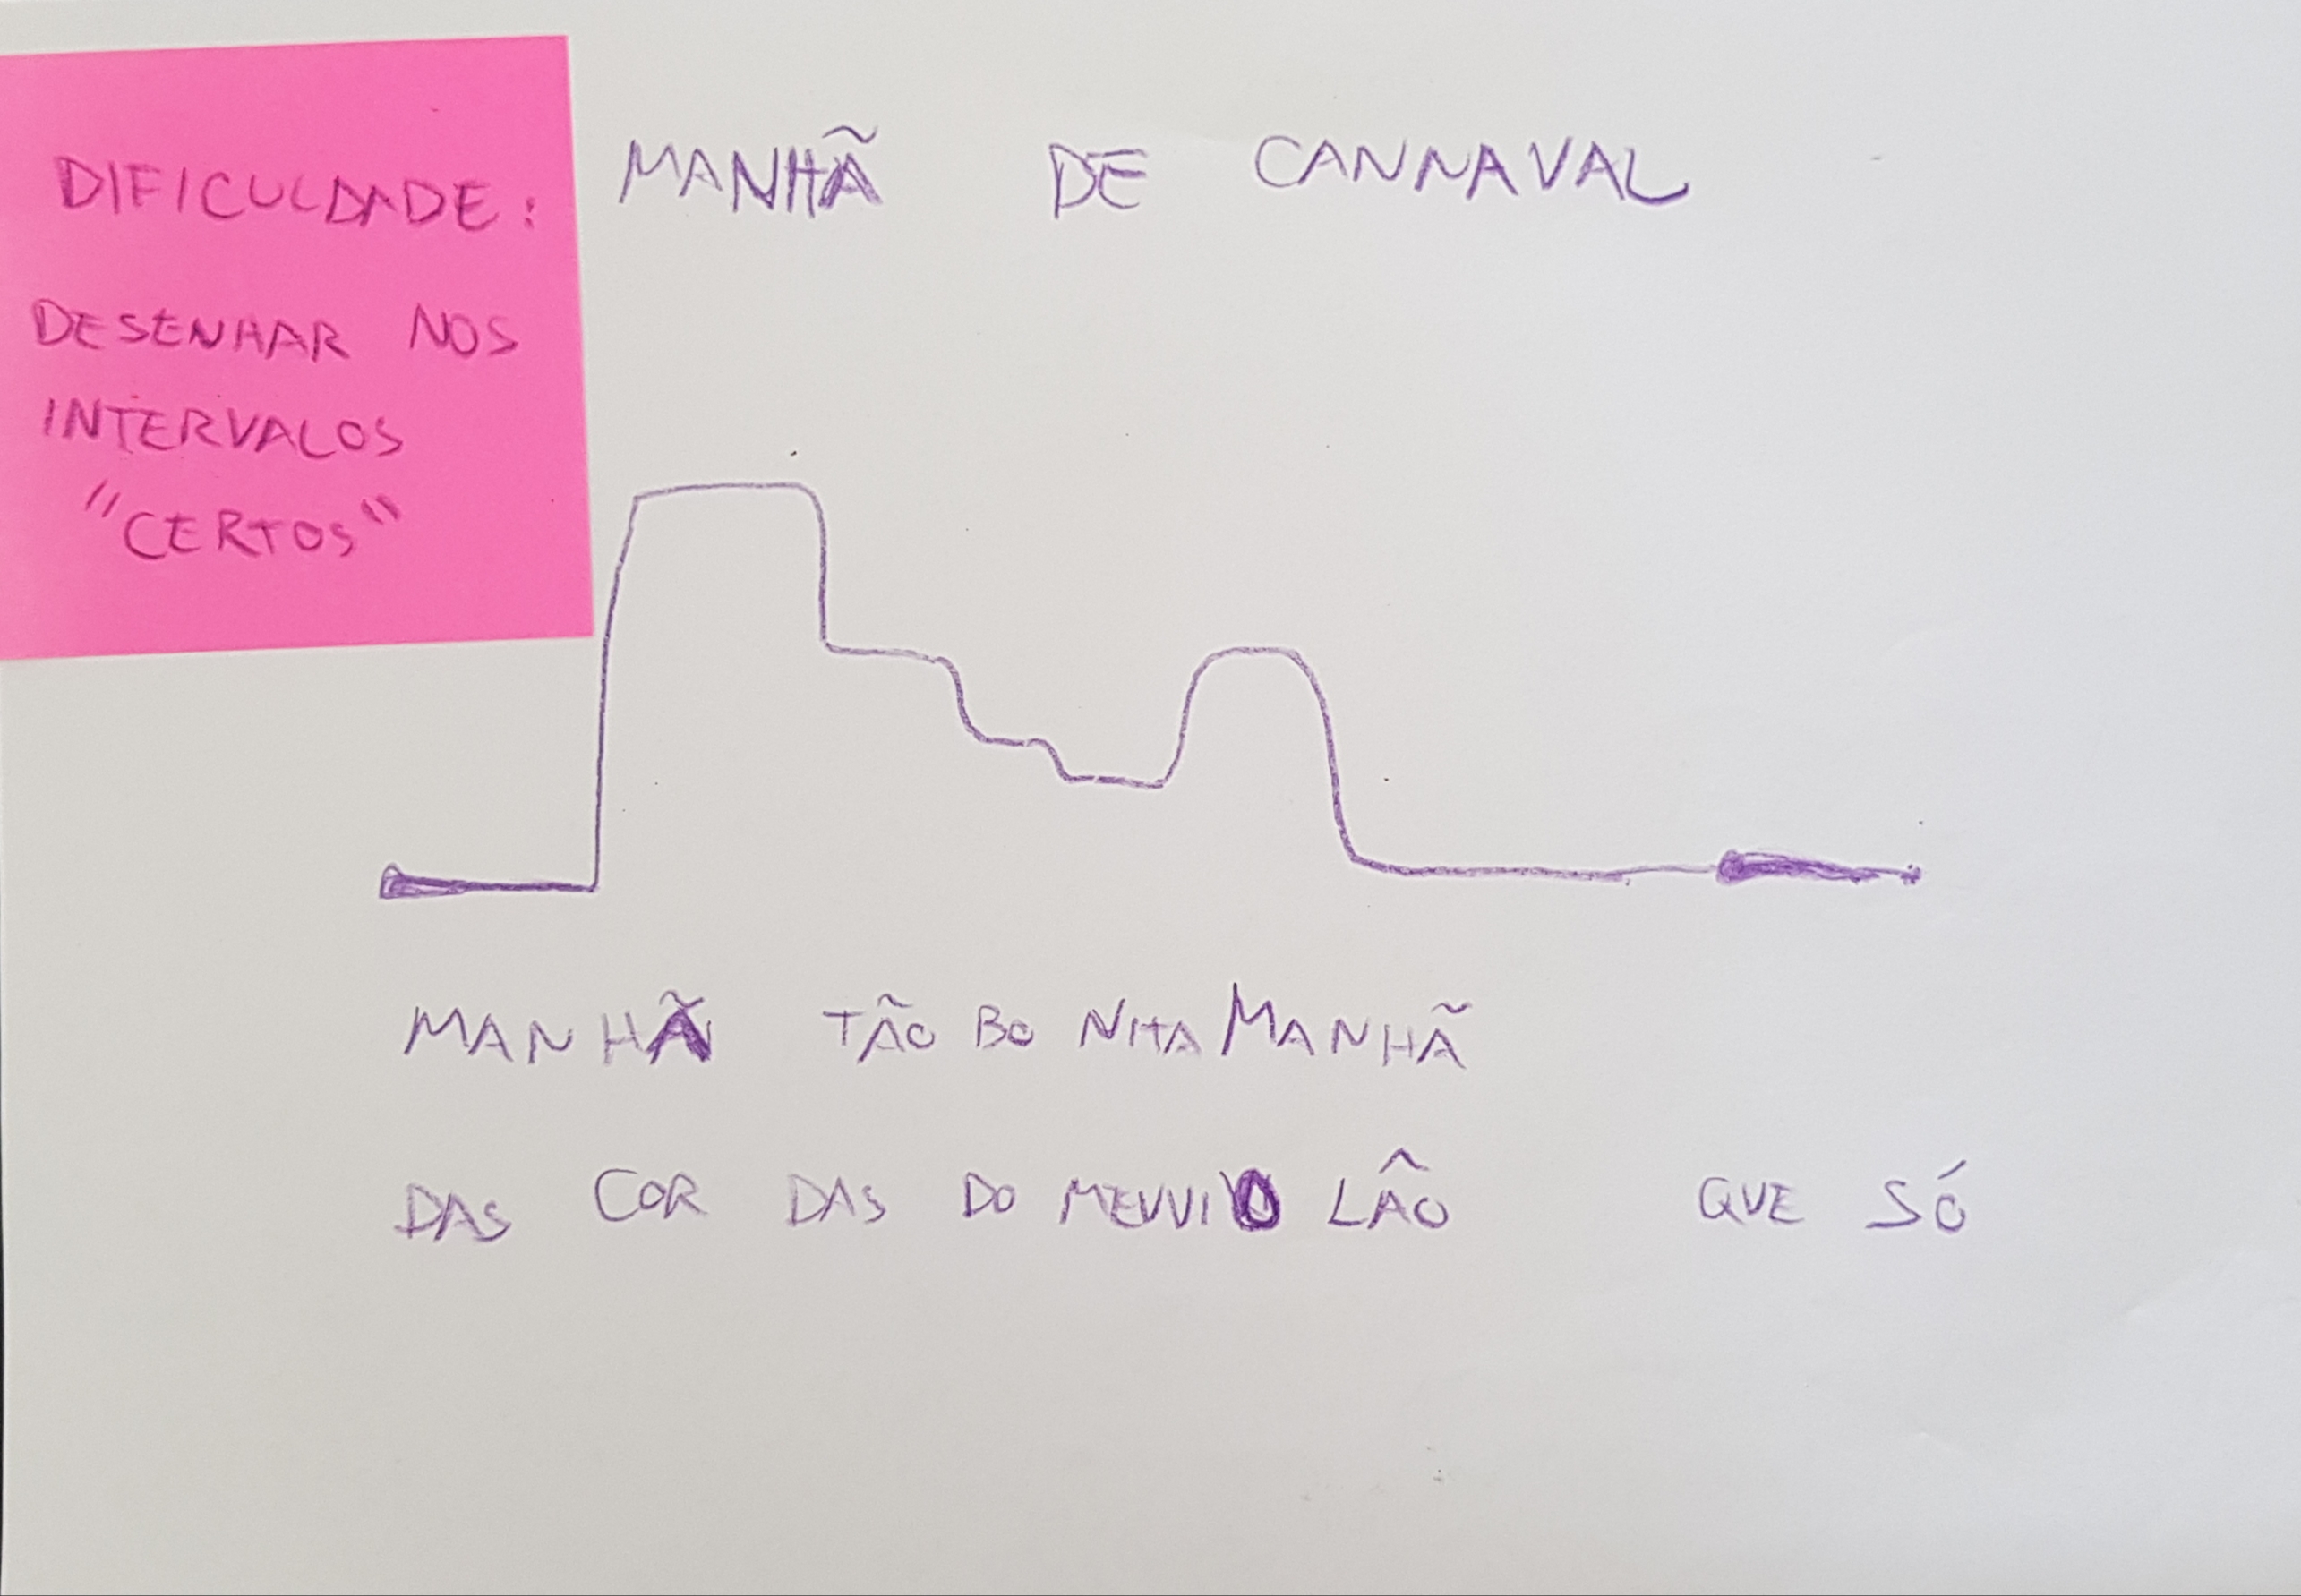 DIFICULDADE:
DESENHAR NOS
INTERVALOS
"CERTOS"
MANHÃ DE CANNAVAL
MANHÃ TÃO BO NITA MANHÃ
DAS COR DAS DO MEU VIO LÃO QUE SÓ